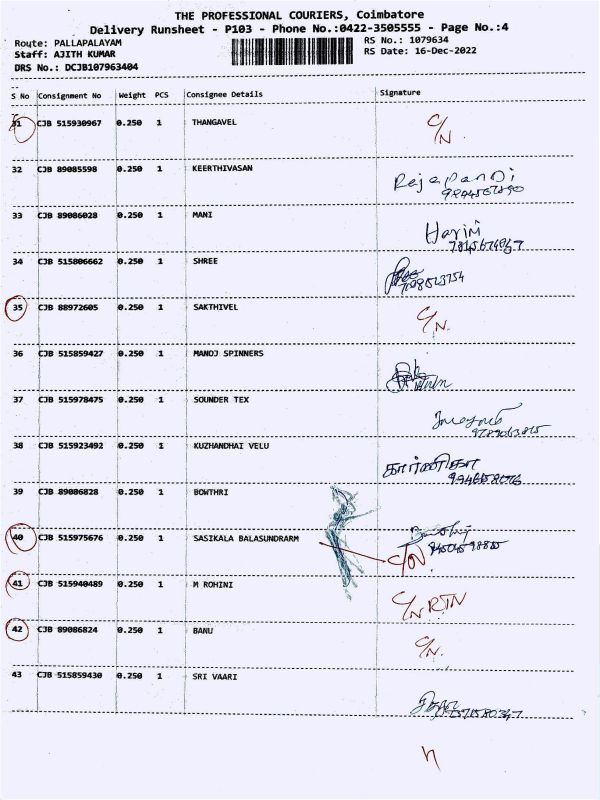 THE PROFESSIONAL COURIERS, Coimbatore
Delivery Runsheet - P103 - Phone No.:0422-3505555 - Page No.:4
Route: PALLAPALAYAM RS No.: 1079634
Staff: AJITH KUMAR RS Date: 16-Dec-2022
DRS No.: DCJB107963404
S No Consignment No Weight PCS Consignee Details Signature
31 CJB 515930967 0.250 1 THANGAVEL C/N.
32 CJB 89085598 0.250 1 KEERTHIVASAN RajapanDi
33 CJB 89086028 0.250 1 MANI Harini
34 CJB 515806662 0.250 1 SHREE
35 CJB 88972605 0.250 1 SAKTHIVEL C/N.
36 CJB 515859427 0.250 1 MANOJ SPINNERS
37 CJB 515978475 0.250 1 SOUNDER TEX
38 CJB 515923492 0.250 1 KUZHANDHAI VELU கார்னிகா
39 CJB 89086828 0.250 1 BOWTHRI
40 CJB 515975676 0.250 1 SASIKALA BALASUNDRARM C/N
41 CJB 515940489 0.250 1 M ROHINI C/N RTN
42 CJB 89086824 0.250 1 BANU C/N.
43 CJB 515859430 0.250 1 SRI VAARI